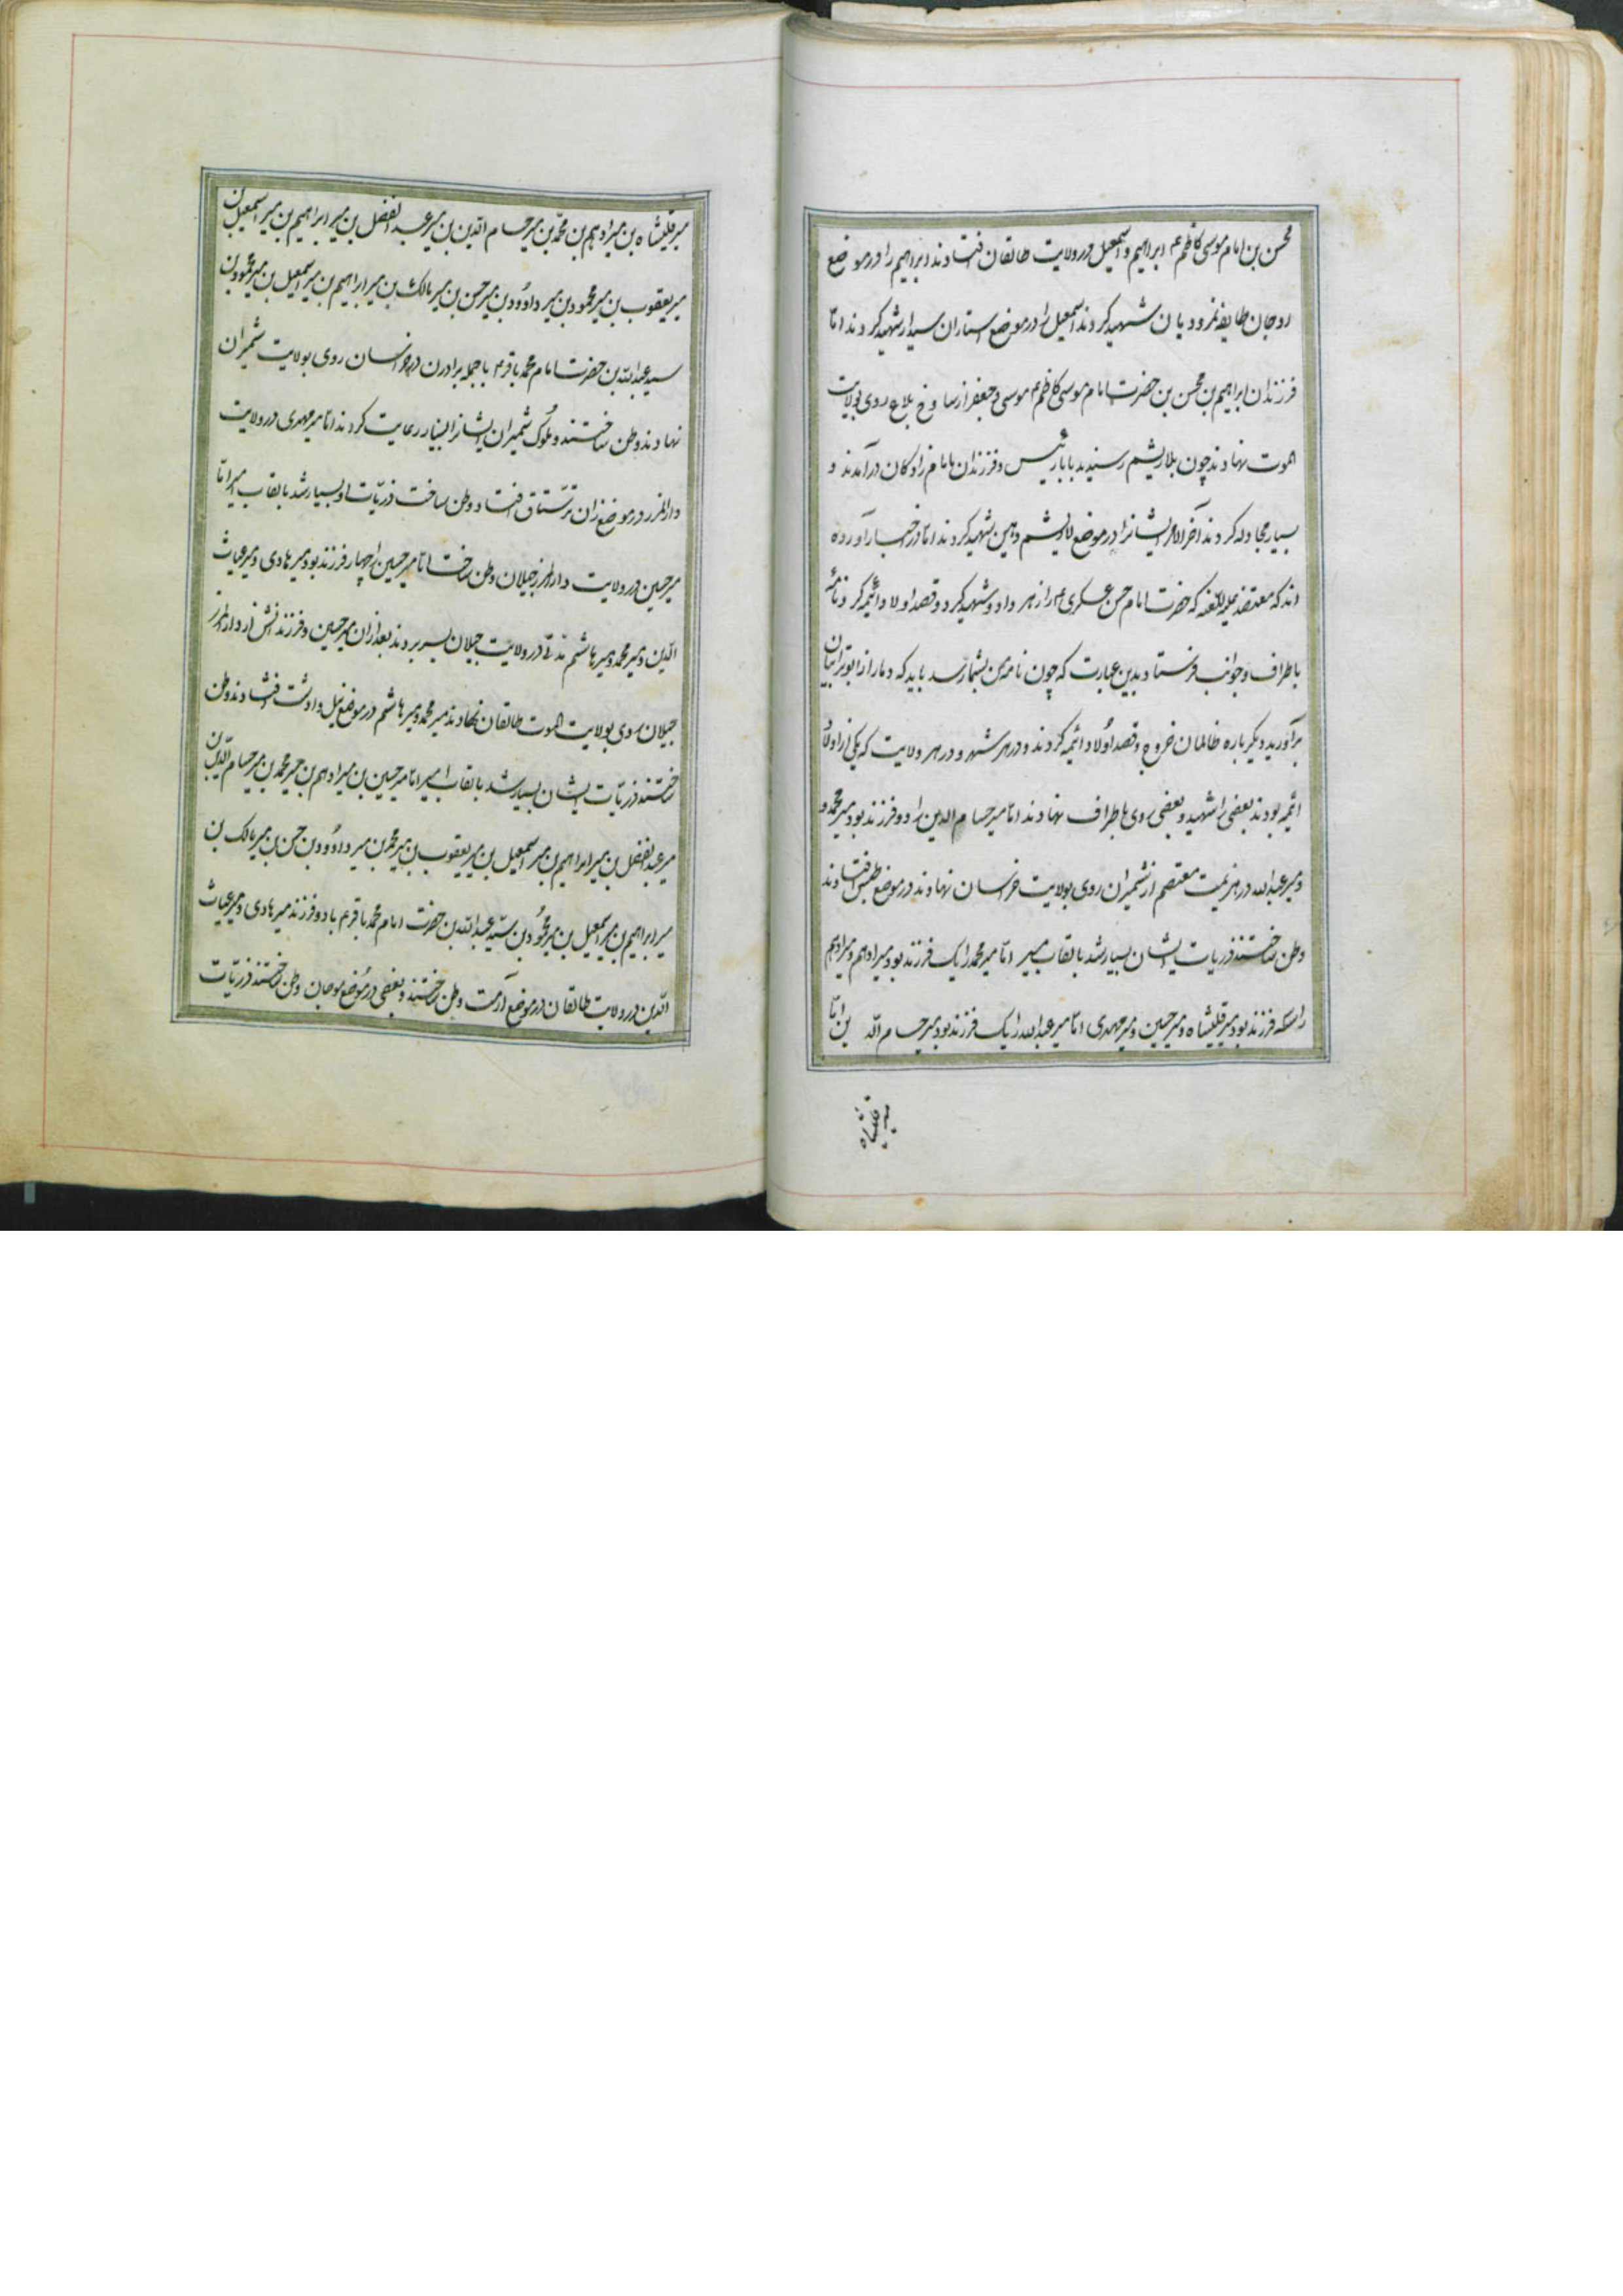 محسن بن امام موسی کاظم ع ابراهیم و اسمعیل در ولایت طالقان افتادند ابراهیم را در موضع
روجان طایفه نمرودیان شهید کردند اسمعیل را در موضع ستاران سیدار شهید کردند امّا
فرزندان ابراهیم بن محسن بن حضرت امام موسی کاظم ع موسی و جعفر از ساوخ بلاغ روی بولایت
الموت نهادند چون بلاریشم رسیدند بابا رئیس و فرزندان با امام زادکان درآمدند و
بسیار مجادله کردند آخر الامر ایشانرا در موضع لاریشم دهین شهید کردند امّا در اخبار آورده
اند که معتضد علیه اللعنه که حضرت امام حسن عسکری ع را زهر داد و شهید کرد و قصد اولاد ائمه کرد و نامه
باطراف و جوانب فرستاد بدین عبارت که چون نامه من بشما رسد باید که دمار از ابوترابیان
برآورید دیکر باره ظالمان خروج و قصد اولاد ائمه کردند و در هر شهر و در هر ولایت که یکی از اولاد
ائمه بودند بعضی را شهید و بعضی روی باطراف نهادند امّا میر حسام الدین را دو فرزند بود میر محمد و
و میر عبدالله در هزیمت معتصم از شمیران روی بولایت خراسان نهادند در موضع طبس افتادند
وطن ساختند ذریات ایشان بسیار شد بالقاب میر امّا میر محمد را یک فرزند بود میر ادهم و میر ادهم
را سه فرزند بود میر قلیشاه و میر حسین و میر مهدی امّا میر عبدالله را یک فرزند بود میر حسام الدین امّا
میر قلیشاه
میر قلیشاه بن میر ادهم بن محمّد بن میر حسام الدین بن میر عبد الفضل بن میر ابراهیم بن میر اسمعیل بن
میر یعقوب بن میر محمود بن میر داوود بن میر حسن بن میر مالک بن میر ابراهیم بن میر اسمعیل بن میر محمود بن
سید عبدالله بن حضرت امام محمد باقر ع با جمله برادرن در خراسان روی بولایت شمیران
نهادند وطن ساختند و ملوک شمیران ایشانرا بسیار رعایت کردند امّا میر مهدی در ولایت
دارالمرز در موضع زان ترستاق افتاد و وطن ساخت ذریّات او بسیار شد بالقاب میر امّا
میر حسین در ولایت دارالمرز جیلان وطن ساخت امّا میر حسین را چهار فرزند بود میر هادی و میر غیاث
الدین و میر محمد و میر هاشم مدتی در ولایت جیلان بسر بردند بعد از ان میر حسین و فرزندانش از دارالمرز
جیلان روی بولایت الموت طالقان نهادند میر محمد و میر هاشم در موضع نیل وادشت افتادند وطن
ساختند ذریّات ایشان بسیار شد بالقاب میر امّا میر حسین بن میر ادهم بن میر محمد بن میر حسام الدین بن
میر عبد الفضل بن میر ابراهیم بن میر اسمعیل بن میر یعقوب بن میر محمد بن میر داوود بن حسن بن میر مالک بن
میر ابراهیم بن میر اسمعیل بن میر محمود بن سیّد عبدالله بن حضرت امام محمد باقر ع با دو فرزند میر هادی و میر غیاث
الدین در ولایت طالقان در موضع آرموت وطن ساختند و بعضی در موضع موجان وطن ساختند ذریّات